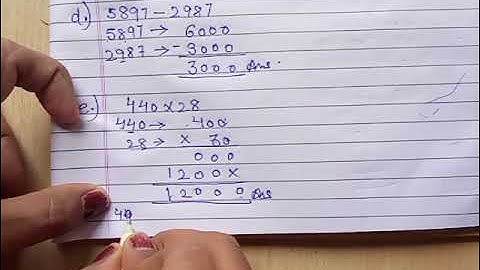 d.) 5897 - 2987
5897 → 6000
2987 → - 3000
3000 Ans.
e.) 440 x 28
440 → 400
28 → x 30
000
1200x
12000 Ans
40